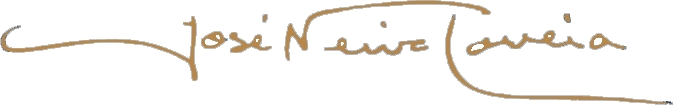 José Neiva Correia